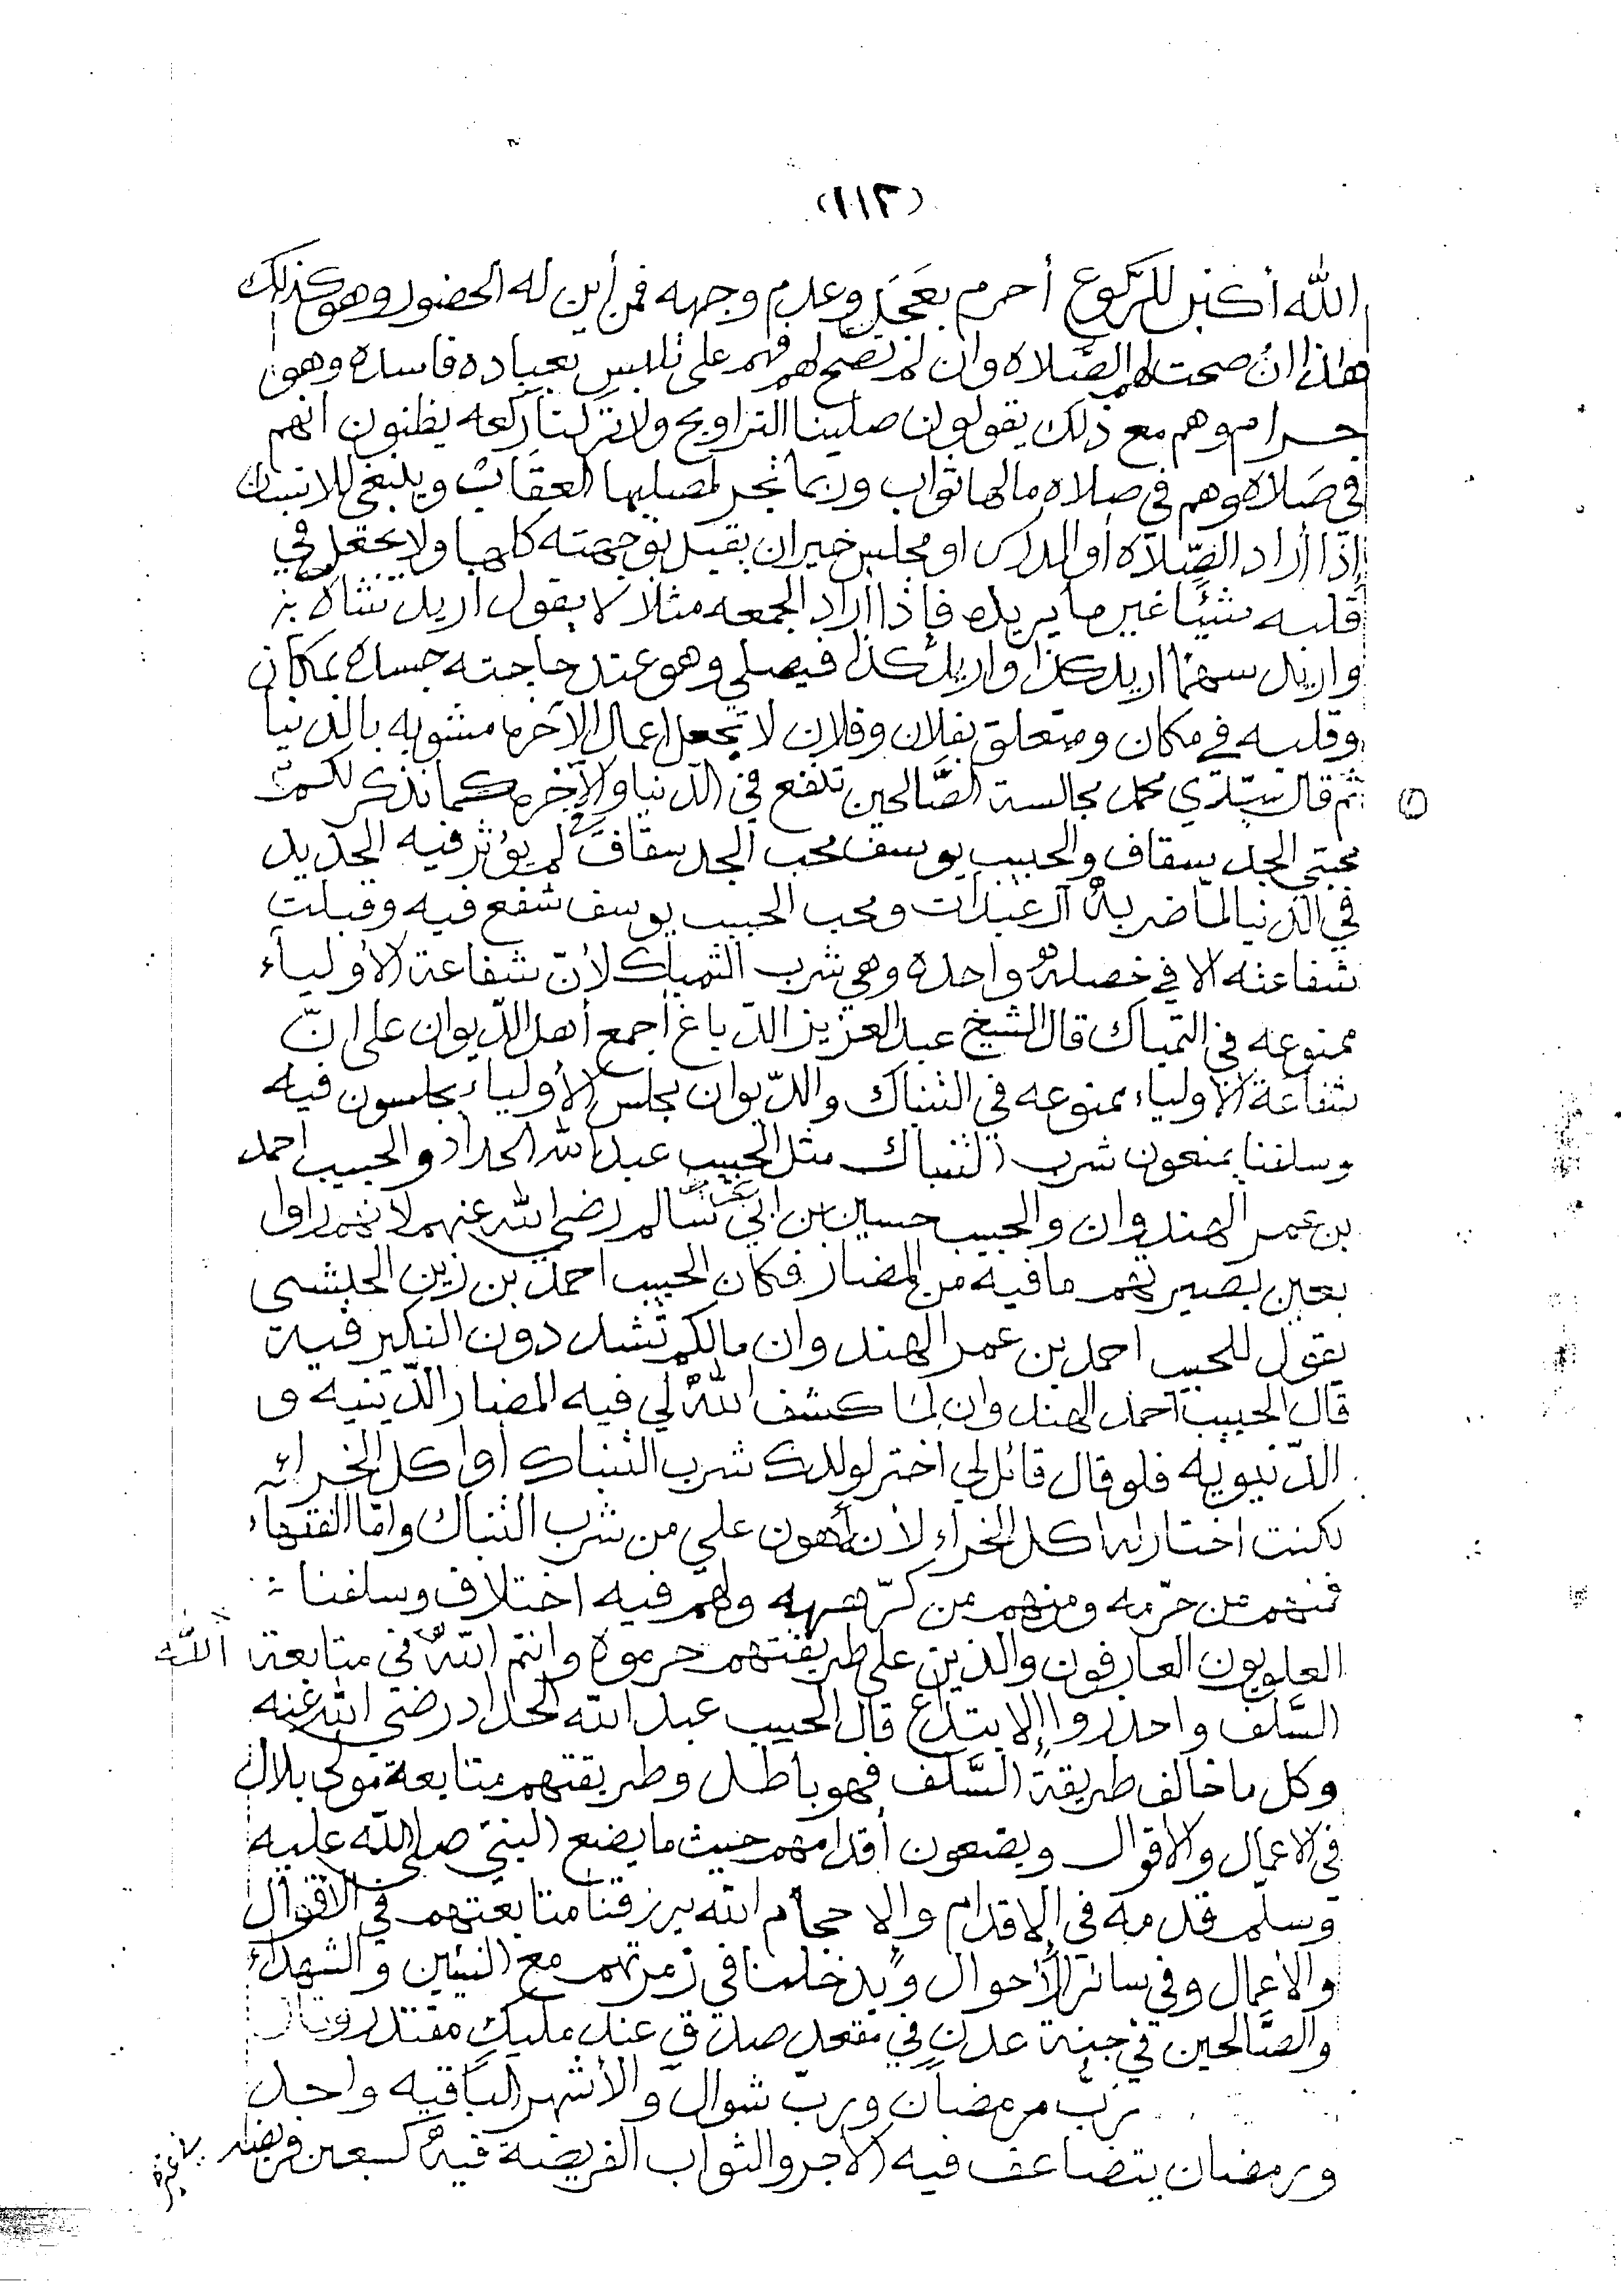 (١١٢)
الله أكبر للركوع أحرم بعَجَل وعدم وجهه فمن أين له الحضور وهو كذلك
هاذا ان صحت لهم الصّلاه وان لم تصح لهم فهم على تلبس بعباده فاسده وهو
حرام وهم مع ذلك يقولون صلينا التراويح ولا تركنا ركعه يظنون انهم
في صَلاه وهم في صلاه مالها ثواب وربما تجر لمصليها العقاب وينبغي للانسان
إذا أراد الصّلاه أو المدرس او مجلس خير ان يقبل بوجهته كلها ولا يجعل في
قلبه شيئا غير ما يريده فإذا اراد الجمعه مثلا لا يقول اريد شاة
واريد سمنا اريد كذا واريد كذا فيصلي وهو عند حاجته جسده بمكان
وقلبه في مكان ومتعلق بفلان وفلان لا تجعل اعمال الآخره مشوبه بالدنيا
ثم قال سيّدي محمد مجالسة الصَّالحين تنفع في الدنيا والآخره كما نذكر لكم
محبتي الجد سقاف والحبيب يوسف محب الجد سقاف لم يؤثر فيه الحديد
في الدنيا لما ضربه آل عبدات ومحب الحبيب يوسف شفع فيه وقبلت
شفاعته الا في خصله واحده وهي شرب التمباك لأن شفاعة الأولياء
ممنوعه في التمباك قال الشيخ عبد العزيز الدّباغ أجمع أهل الدّيوان على انّ
شفاعة الأولياء ممنوعه في التنباك والدّيوان مجلس الأولياء يجلسون فيه
وسلفنا يمنعون شرب التنباك مثل الحبيب عبد الله الحداد والحبيب احمد
بن عمر الهندوان والحبيب حسين بن ابي بكر بن سالم رضي الله عنهم لانهم راوا
بعين بصيرتهم ما فيه من المضار فكان الحبيب احمد بن زين الحبشي
يقول للحبيب احمد بن عمر الهندوان مالكم تشددون النكير فيه
قال الحبيب احمد الهندوان لما كشف اللهُ لي فيه المضار الدّينيه و
الدّنيويه فلو قال قائل لي اختر لولدك شرب التنباك أو اكل الخراء
لكنت اختار له اكل الخراء لأنه أهون علي من شرب التنباك وامّا الفقهاء
فمنهم من حرّمه ومنهم من كرّهه ولهم فيه اختلاف وسلفنا
العلويون العارفون والذين على طريقتهم حرموه وانتم اللهَ في متابعة الله
السَّلف واحذروا الإبتداع قال الحبيب عبد الله الحداد رضي الله عنه
وكل ما خالف طريقة السَّلف فهو باطل وطريقتهم متابعة مولى بلال
في الاعمال والاقوال ويضعون أقدامهم حيث ما يضع النبيّ صلى الله عليه
وسلم قدمه في الإقدام والإحجام الله يرزقنا متابعتهم في الاقوال
والاعمال وفي سائر الأحوال ويدخلنا في زمرتهم مع النبيين والشهداء
والصّالحين في جنة عدن في مقعد صدق عند مليك مقتدر وقال
ربّ رمضان وربّ شوال والأشهر الباقيه واحد
ورمضان يتضاعف فيه الأجر والثواب الفريضة فيه كسبعين فريضه